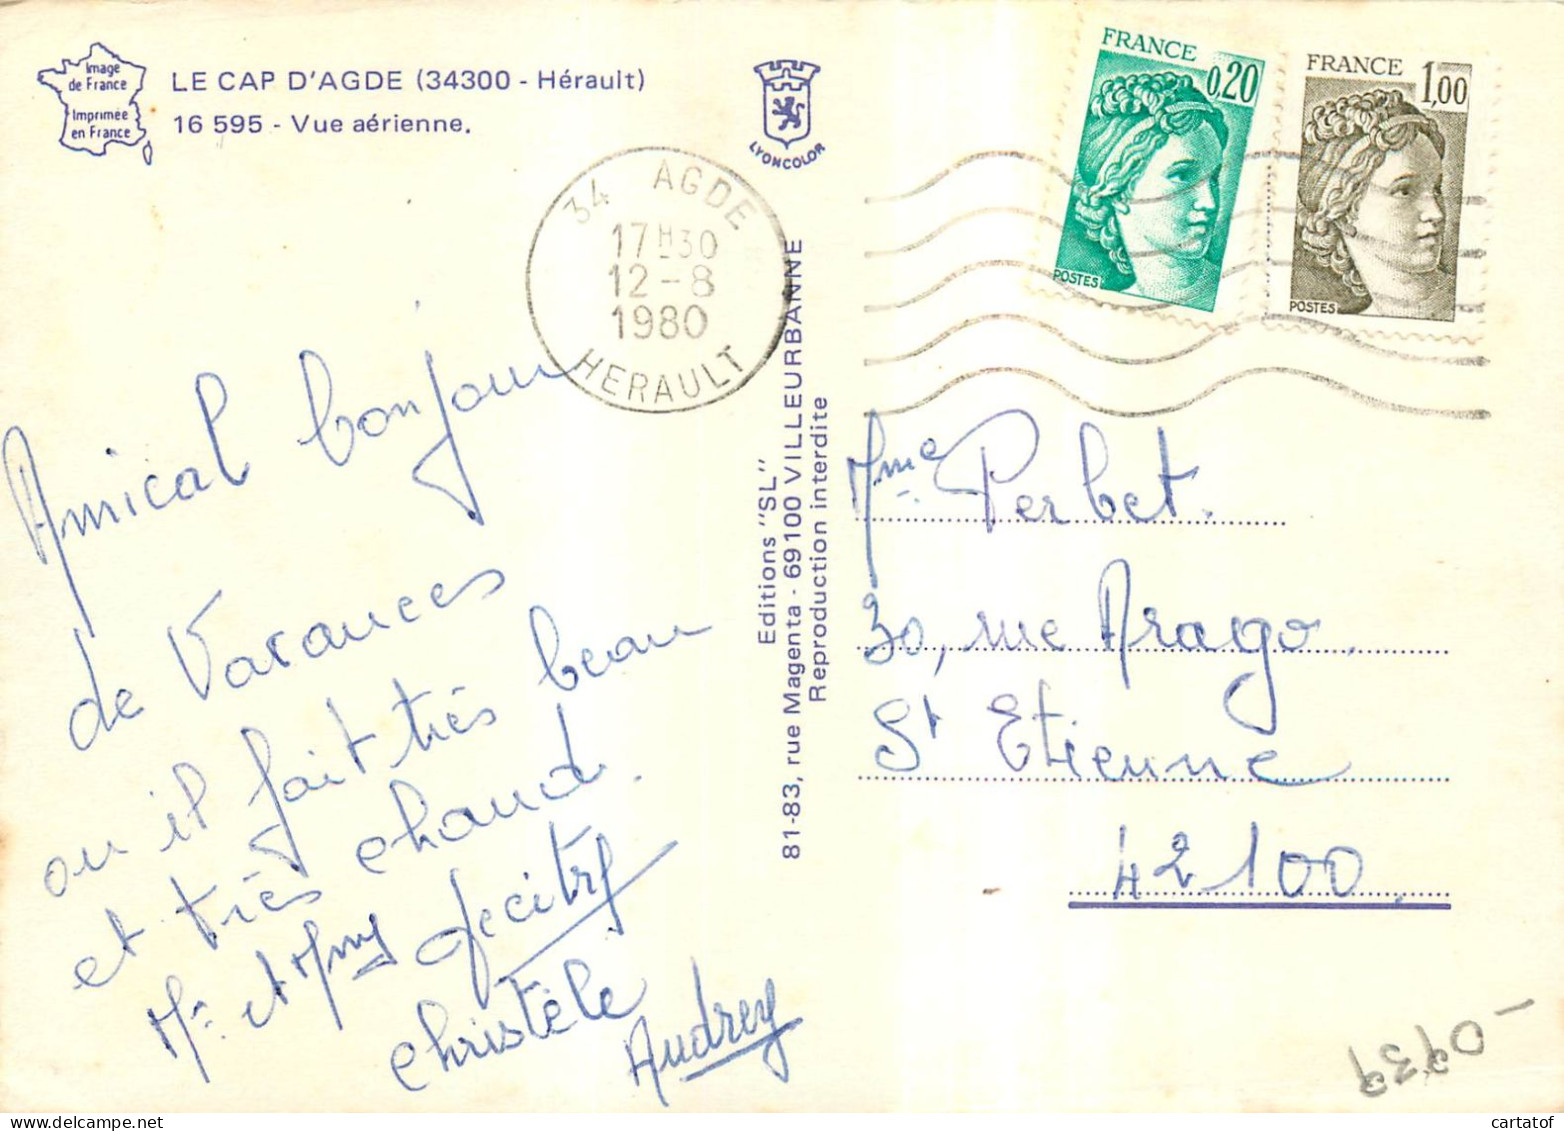 Image
de France
Imprimée
en France
LE CAP D'AGDE (34300 - Hérault)
16 595 - Vue aérienne.
LYONCOLOR
34 AGDE
17H30
12-8
1980
HERAULT
FRANCE
0,20
POSTES
FRANCE
1,00
POSTES
Amical bonjour
de Vacances
ou il fait très beau
et très chaud.
Mr et Mme
Christèle
Audrey
Editions "SL"
81-83, rue Magenta - 69100 VILLEURBANNE
Reproduction interdite
Mme Perbet.
30, rue Arago.
St Etienne
42100
cartatof